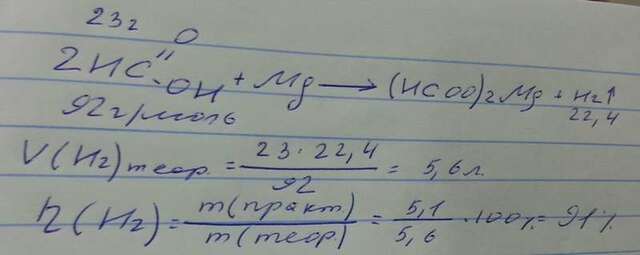 23г O
2HC-OH + Mg → (HCOO)2Mg + H2↑
92г/моль 22,4
V(H2)теор. = 23·22,4 / 92 = 5,6л.
η(H2) = m(практ) / m(теор.) = 5,1 / 5,6 ·100% = 91%